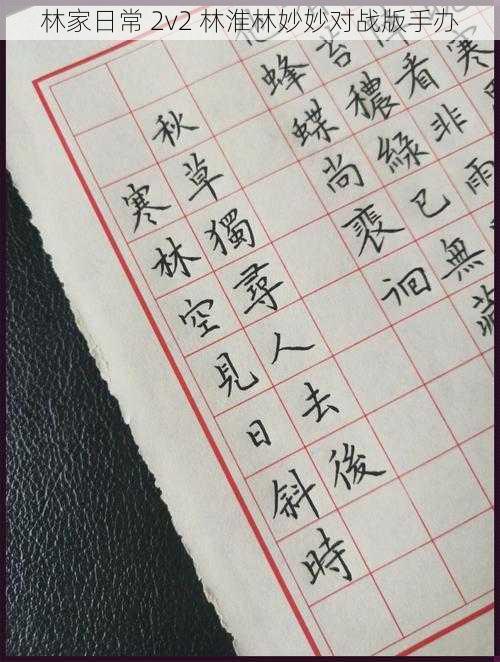 林家日常 2v2 林淮林妙妙对战版手办
寒
看非雨
苔穠綠已無
蜂蝶尚裴洄
秋草獨尋人去後
寒林空見日斜時